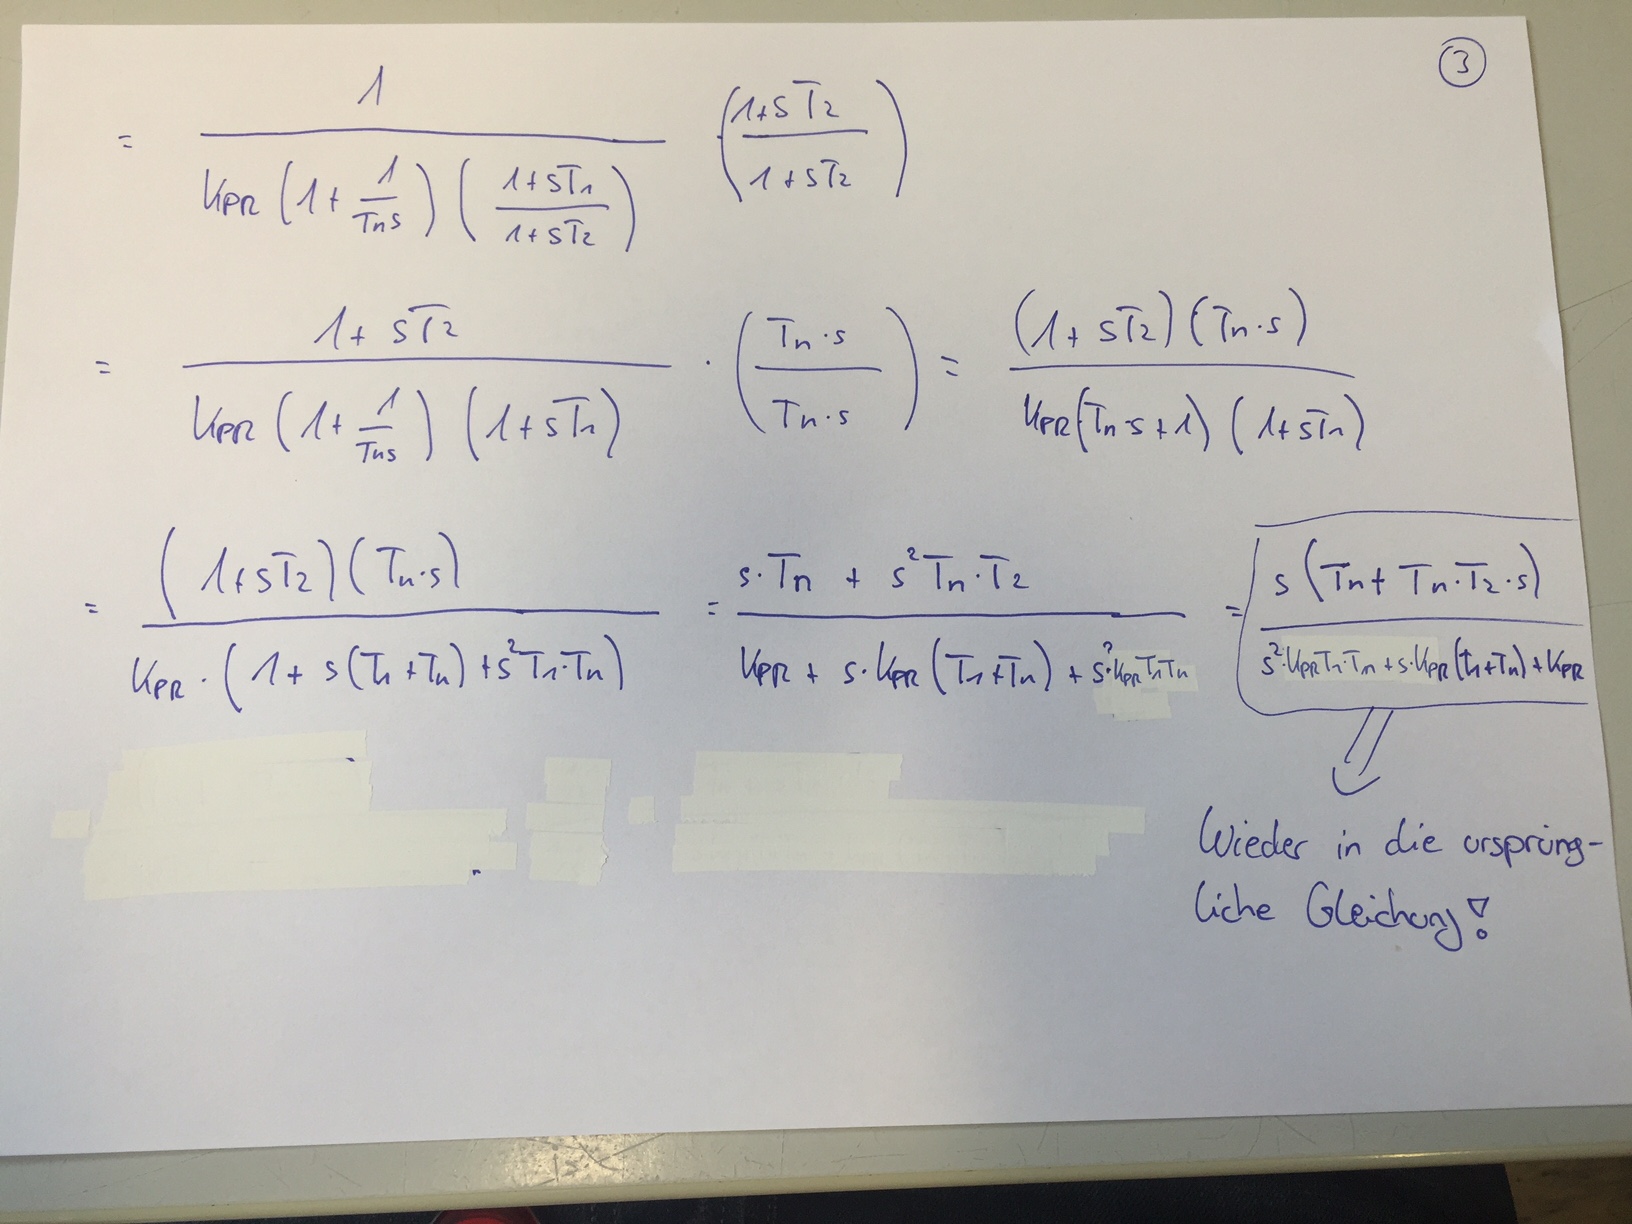 ③
= 1 / (K_PR (1 + 1/(T_n s)) ((1+sT_1)/(1+sT_2))) ((1+sT_2)/(1+sT_2))
= (1 + sT_2) / (K_PR (1 + 1/(T_n s)) (1+sT_1)) · ((T_n·s)/(T_n·s)) = ((1+sT_2)(T_n·s)) / (K_PR(T_n·s+1)(1+sT_1))
= ((1+sT_2)(T_n·s)) / (K_PR·(1+s(T_1+T_n)+s²T_1·T_n)) = (s·T_n + s²T_n·T_2) / (K_PR + s·K_PR(T_1+T_n) + s²·K_PR T_1 T_n) = (s(T_n+T_n·T_2·s)) / (s²·K_PR T_1·T_n + s·K_PR(T_1+T_n)+K_PR)
Wieder in die ursprüng-
liche Gleichung!